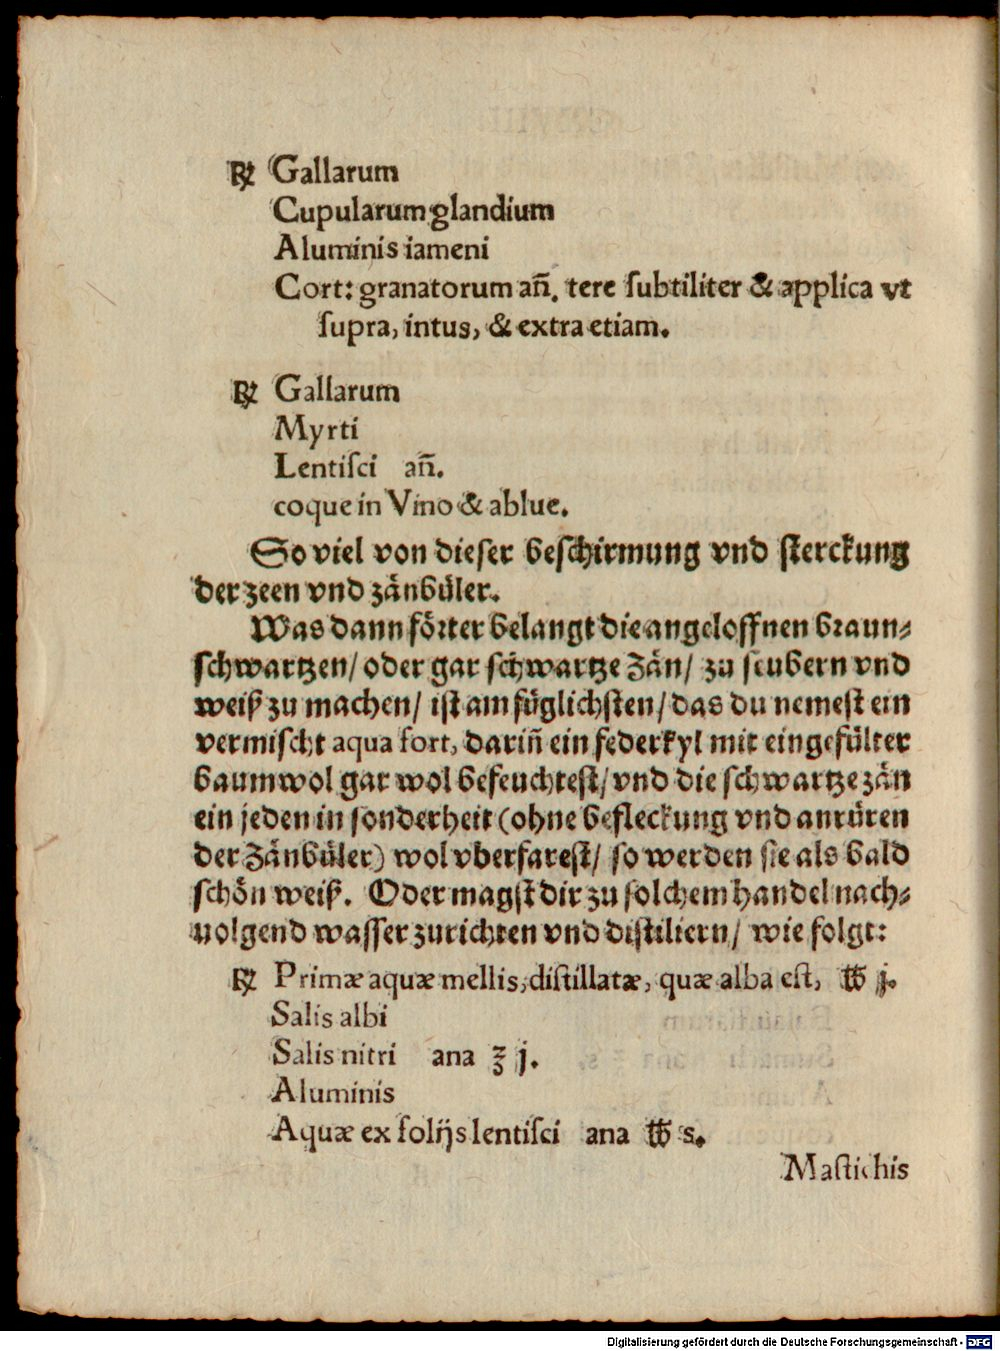 ℞ Gallarum
Cupularum glandium
Aluminis iameni
Cort: granatorum añ. tere ſubtiliter & applica vt
ſupra, intus, & extra etiam.
℞ Gallarum
Myrti
Lentiſci añ.
coque in Vino & ablue.
So viel von dieſer beſchirmung vnd ſterckung
der zeen vnd zänbüler.
Was dann förter belangt die angeloffnen braun⸗
ſchwartzen/ oder gar ſchwartze Zän/ zu ſeubern vnd
weiß zu machen/ iſt am füglichſten/ das du nemeſt ein
vermiſcht aqua fort, dariñ ein federkyl mit eingefülter
baumwol gar wol befeuchteſt/ vnd die ſchwartze zän
ein jeden in ſonderheit (ohne befleckung vnd anrüren
der Zänbüler) wol vberfareſt/ ſo werden ſie als bald
ſchön weiß. Oder magſt dir zu ſolchem handel nach⸗
uolgend waſſer zurichten vnd diſtiliern/ wie folgt:
℞ Primæ aquæ mellis, diſtillatæ, quæ alba eſt, ℔ j.
Salis albi
Salis nitri ana ʒ j.
Aluminis
Aquæ ex folijs lentiſci ana ℔ s.
Maſtichis
Digitalisierung gefördert durch die Deutsche Forschungsgemeinschaft - DFG